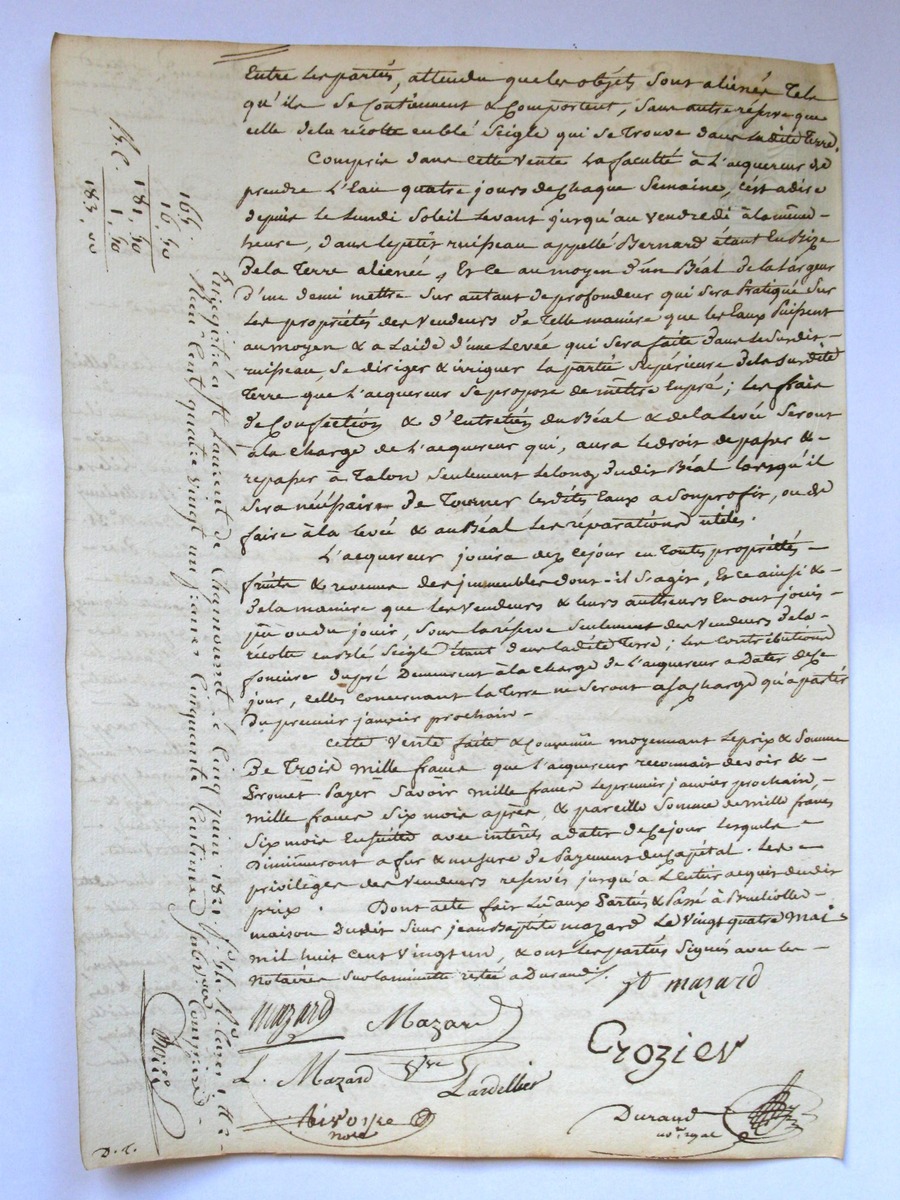 Entre les parties, attendu que les objets sont alienés Tels
qu'ils se Contiennent & Comportent, sans autre réserve que
celle de la récolte en blé Seigle qui se Trouve dans ladite Terre.
Compris dans cette vente la faculté à L'acquereur de
prendre L'Eau quatre jours de chaque Semaine, c'est adire
depuis le Lundi Soleil Levant jusqu'au vendredi à la même
heure, dans le petit ruisseau appellé Bernard étant En Bize
de la Terre alienée, Et ce au moyen d'un Béal de la Largeur
d'une demi mettre Sur autant de profondeur qui sera Pratiqué Sur
Les propriétés des Vendeurs de Telle maniere que les Eaux Puissent
au moyen & a L'aide d'une Levée qui sera faite dans le Susdit
ruisseau, se diriger & irriguer la partie Supérieure de la Susdite
Terre que L'acquereur se propose de mettre En pré; les frais
de Confection & d'Entretien du Béal & de la Levée Seront
à la charge de L'acquereur qui, aura le droit de passer &
repasser à Talon Seulement Le long dudit Béal lorsqu'il
sera nécéssaire de Tourner lesdits Eaux a Son profit, ou de
faire à la Levée & au Béal Les réparations utiles.
L'acquereur jouira dez cejour en Toutes propriétés
fruits & revenus des immeubles dont-il s'agit, Et ce ainsi &
de la maniere que les Vendeurs & leurs autheurs En ont joui
pû ou du jouir, sous la réserve Seulement des Vendeurs de la
récolte en Blé Seigle étant dans ladite Terre; les Contributions
foncière du pré Demeurent à la charge de L'acquereur a Dater dece
jour, celles concernant la Terre ne Seront a sa charge qu'a partir
du premier janvier prochain.
Cette Vente faite & Convenue moyennant Le prix & Somme
De Trois mille francs que L'acquereur reconnait devoir &
Promet Payer Savoir mille francs Le premier janvier prochain,
mille francs Six mois après, & pareille Somme de mille francs
Six mois Ensuite avec intérêts a dater de ce jour lesquels
Diminueront a fur & mesure de Payement du Capital. Les
privilèges des Vendeurs reservés jusqu'a L'entier acquis dudit
prix. Dont acte fait Lu aux Parties & Passé à
maison dudit Sieur jean Baptiste mazard Le Vingt quatre Mai
mil huit Cent Vingt un, & ont les parties Signés avec les
notaires Sur la minute restée a Durand.
jB mazard
Mazard
Mazard
Crozier
L. Mazard
Vve Lardellier
notre
Durand
nore royal
D. T.
165.
16, 50
181, 50
1, 50
183, 00
Enregistré à St Laurent de Chamousset le Cinq juin 1821
Reçu Cent quatre Vingt un francs Cinquante Centimes Subvon Comprise